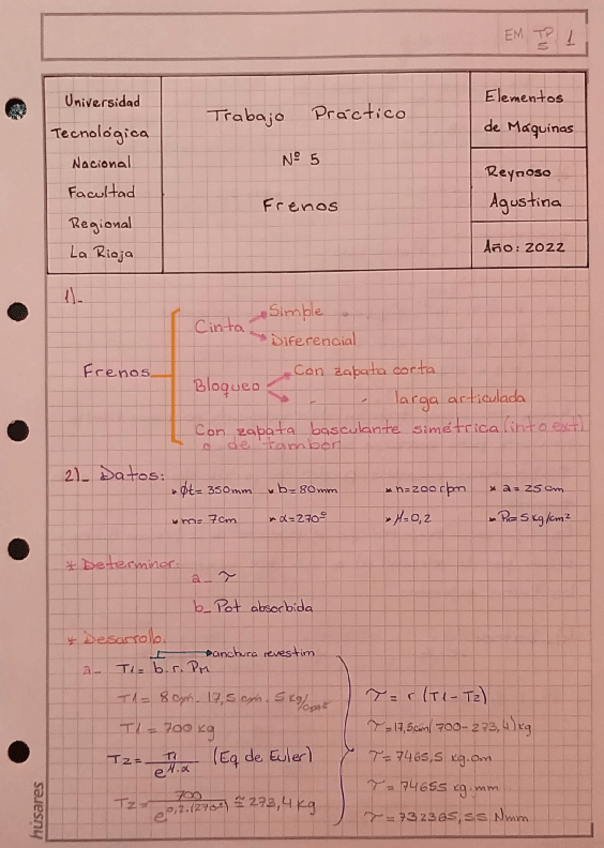 EM TP 5 1
Universidad
Tecnológica
Nacional
Facultad
Regional
La Rioja
Trabajo Práctico
Nº 5
Frenos
Elementos
de Máquinas
Reynoso
Agustina
Año: 2022
1)_
Frenos
Cinta
Simple
Diferencial
Bloqueo
Con zapata corta
- - larga articulada
Con zapata basculante simétrica (int o ext)
o de tambor
2)_ Datos:
φt= 350mm b= 80mm n=200rpm a= 25cm
m= 7cm α=270° μ=0,2 Pa=5kg/cm²
* Determinar:
a_ τ
b_ Pot absorbida
* Desarrollo:
anchura revestim
a_ T1= b.r.PM
T1= 8cm. 17,5cm. 5kg/cm²
T1= 700kg
T2= T1/e^μ.α (Eq de Euler)
T2= 700/e^0,2.(270°) ≅ 273,4kg
τ= r(T1-T2)
τ=17,5cm(700-273,4)kg
τ= 7465,5 kg.cm
τ= 74655 kg.mm
τ= 732365,55 Nmm
húsares